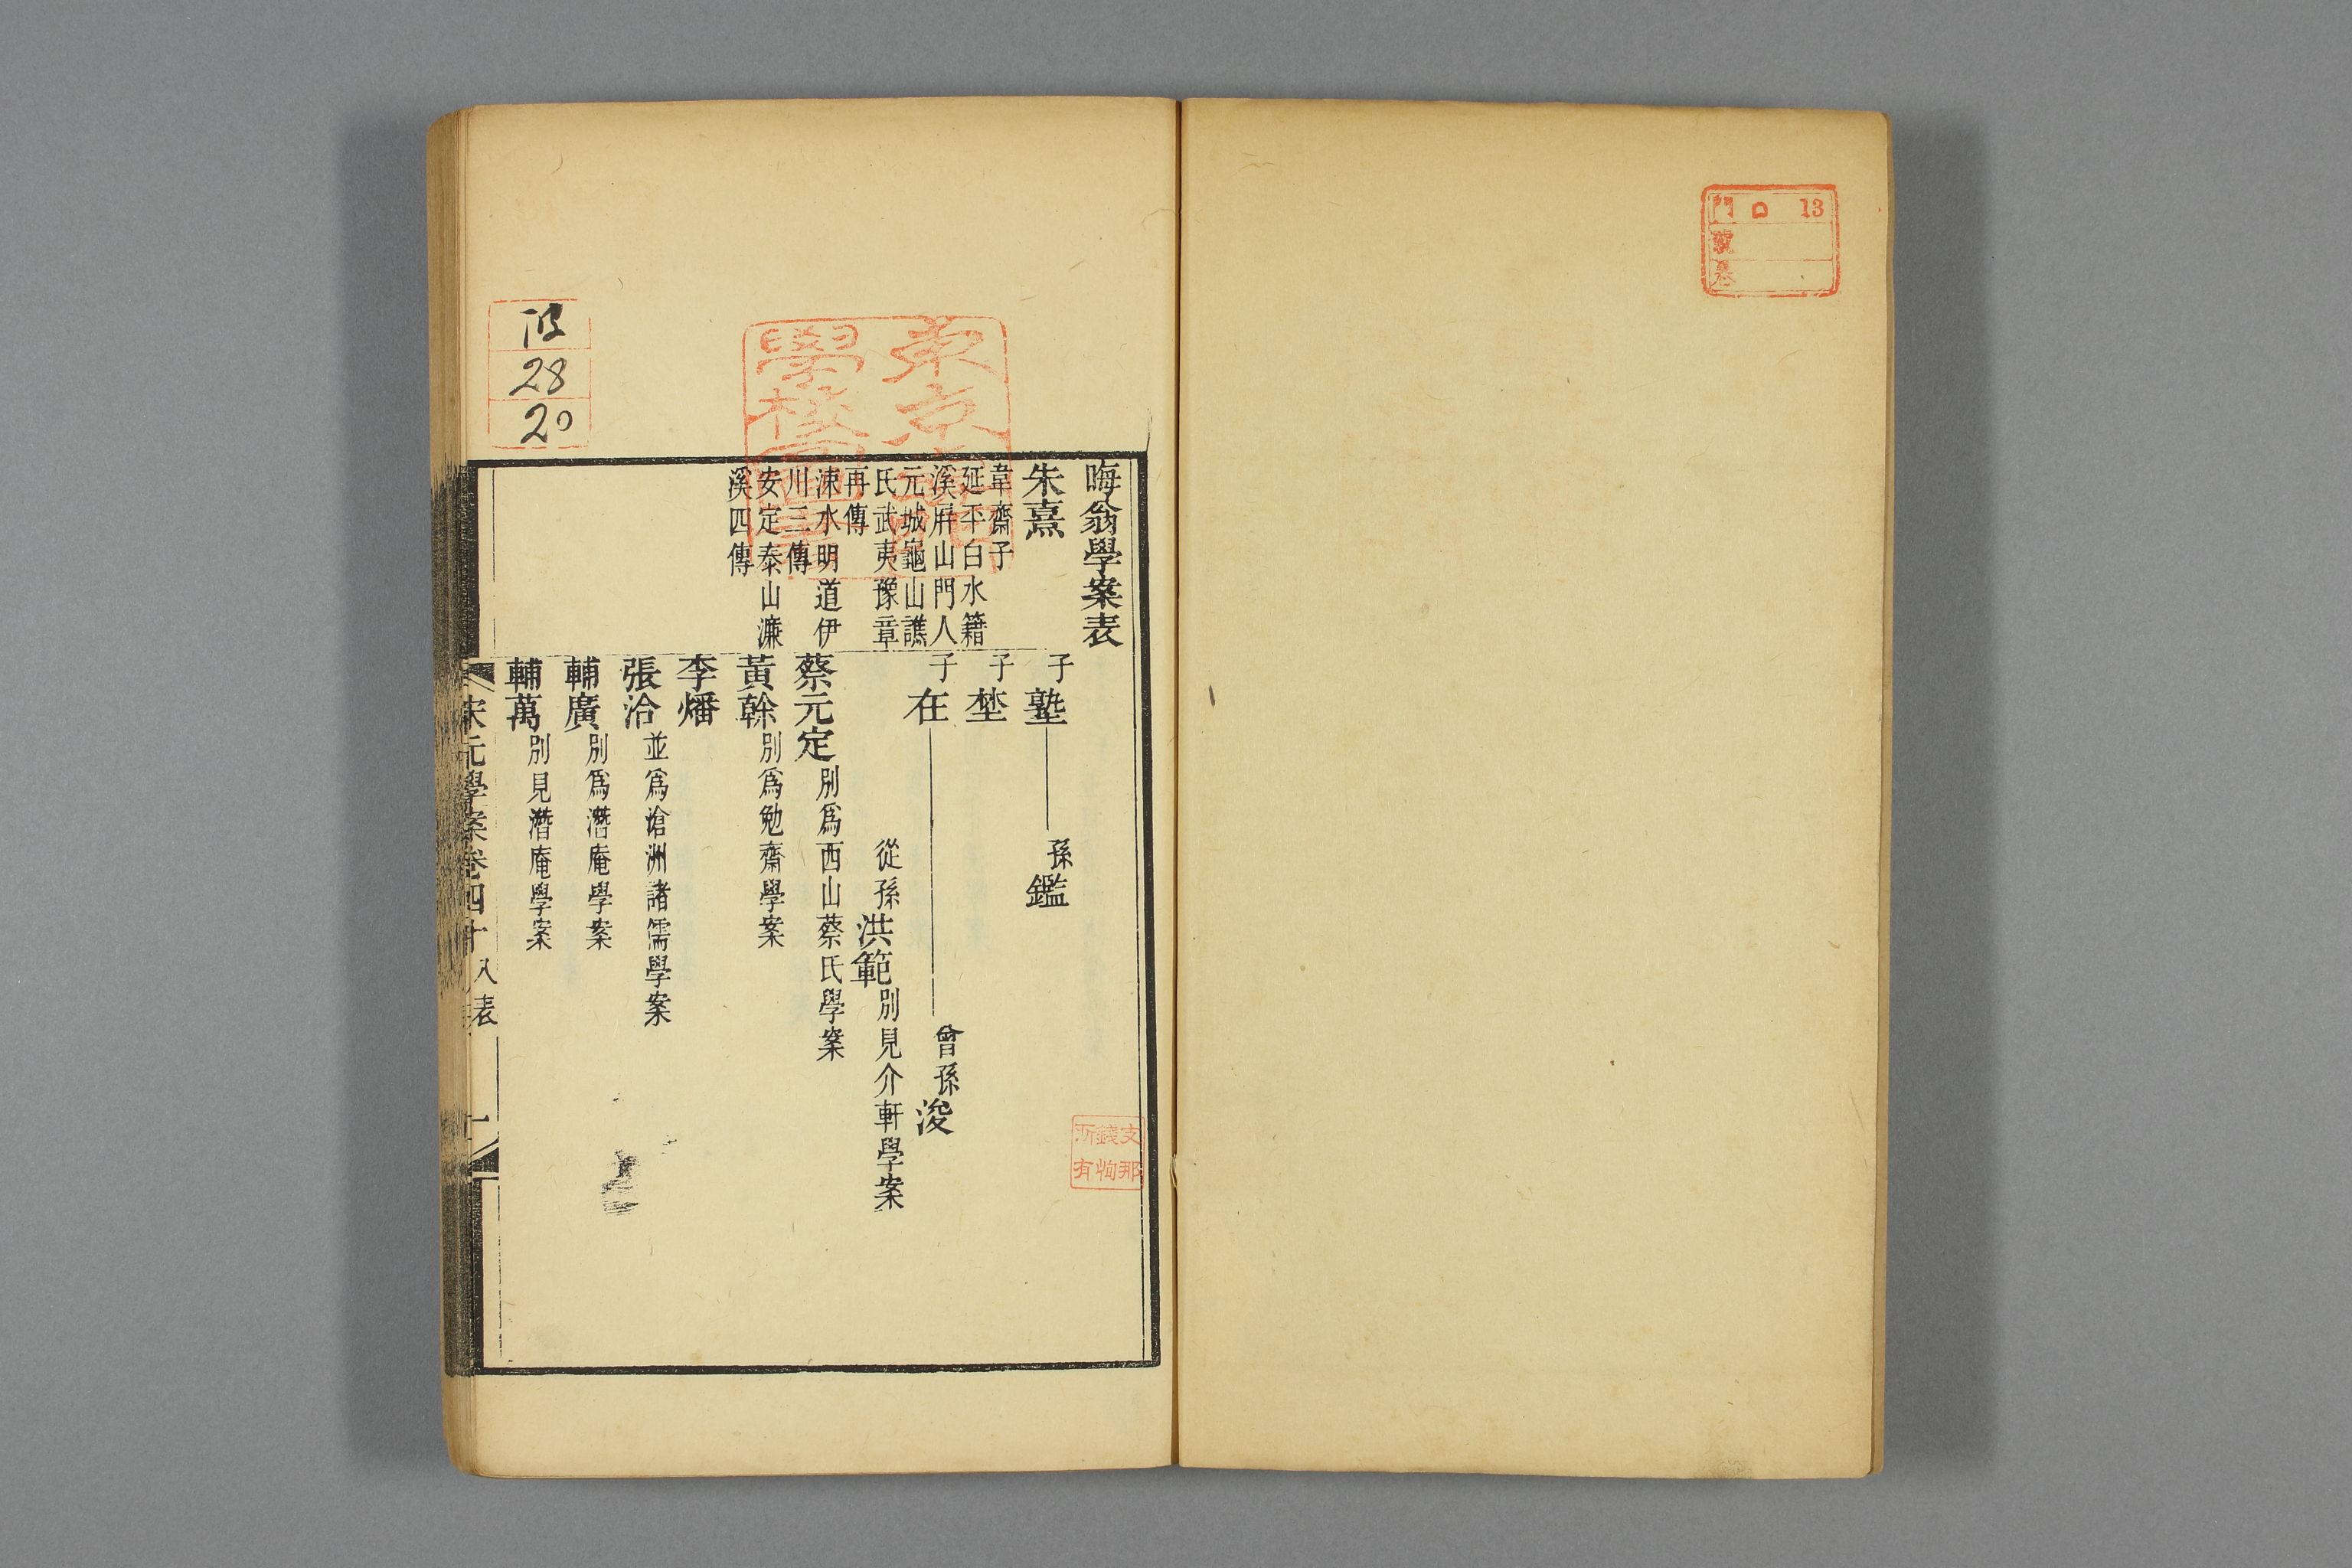 13
門 口
號
卷
晦翁學案表
朱熹
韋齋子
延平白水籍
溪屏山門人
元城龜山譙
氏武夷豫章
再傳
涑水明道伊
川三傳
安定泰山濂
溪四傳
子塾 孫鑑
子埜
子在 曾孫浚
從孫洪範別見介軒學案
蔡元定別爲西山蔡氏學案
黃榦別爲勉齋學案
李燔
張洽並爲滄洲諸儒學案
輔廣別爲潛庵學案
輔萬別見潛庵學案
宋元學案卷四十八表
一
28
20
東京
學校圖書
支那
錢恂
所有